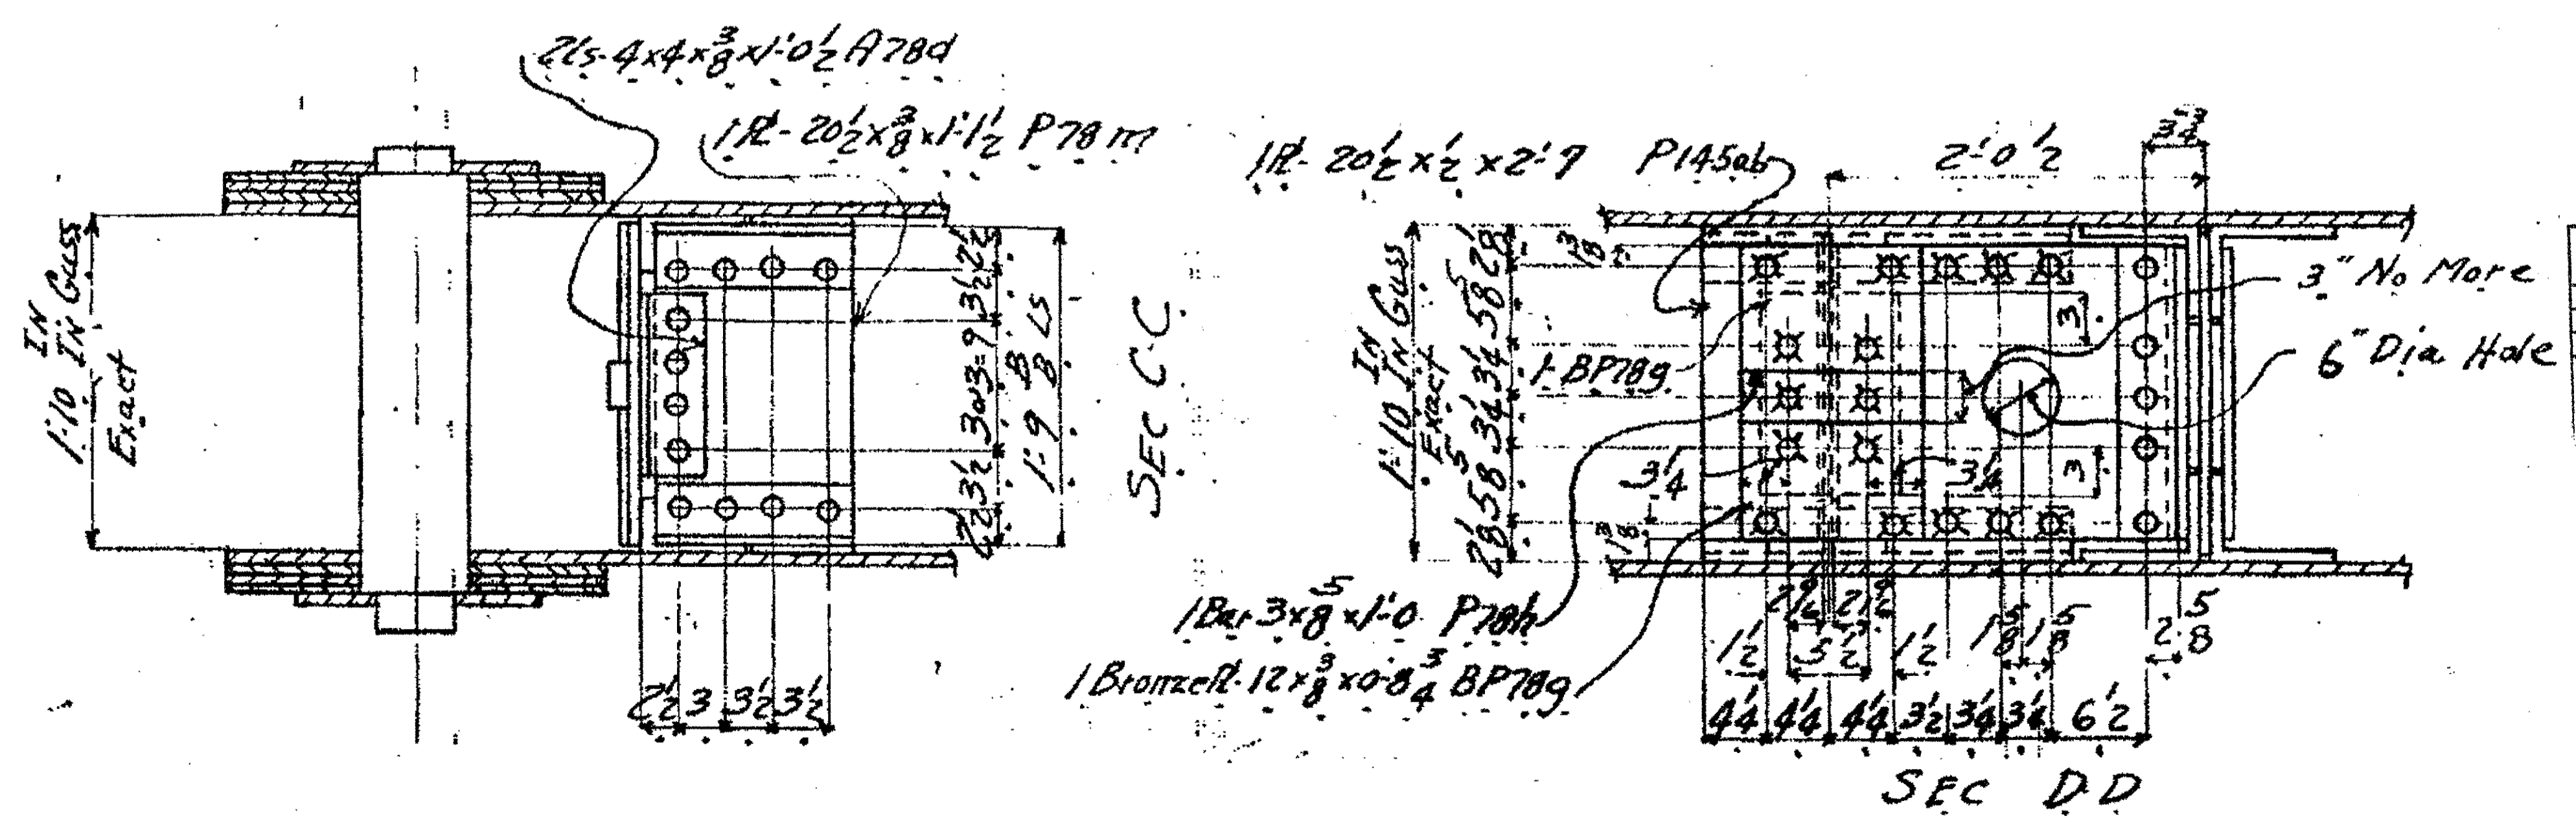 2Ls-4x4x3/8x1'-0 1/2 A78d
1Pl-20 1/2x3/8x1'-1 1/2 P78m
1'-10 IN IN GUSS
Exact
2 1/2 3 1/2 3@3=9 3 1/2 2 1/2
1'-9 B B LS
SEC C-C
2 1/2 3 3 1/2 3 1/2
1Pl-20 1/2x1/2x2'-7 P145ab
2'-0 1/2
3 3/4
1 3/8
1'-10 IN IN GUSS
Exact
2 1/8 5 5/8 3 1/4 3 1/4 5 5/8 2 1/8
3
3" No More
6" Dia Hole
1-BP78g
3 1/4
3 1/4
3
1 3/8
1Bar 3x5/8x1'-0 P78h
1Bronze Pl-12x3/8x0-8 3/4 BP78g
1 5/8 1 5/8
2 5/8
1 1/2 5 1/2 1 1/2
4 1/4 4 1/4 4 1/4 3 1/2 3 1/4 3 1/4 6 1/2
SEC D-D